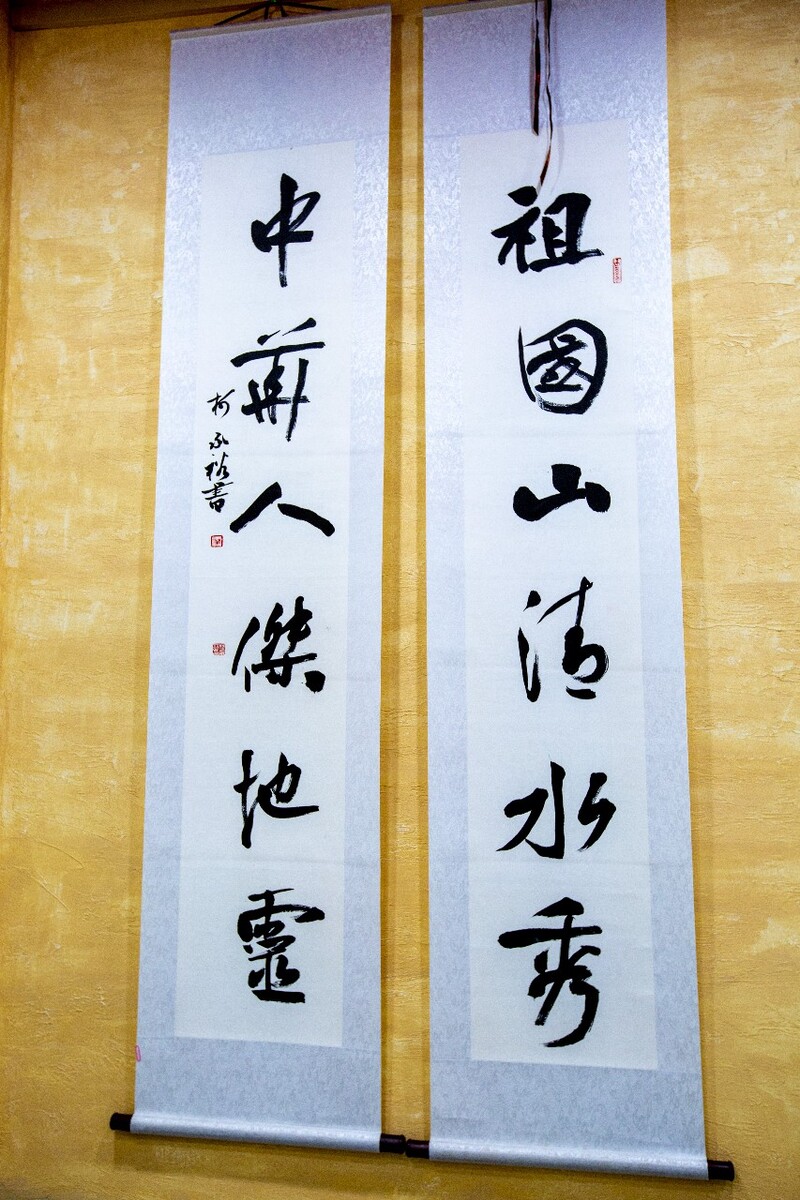 祖國山清水秀
中華人傑地靈
柯永裕書